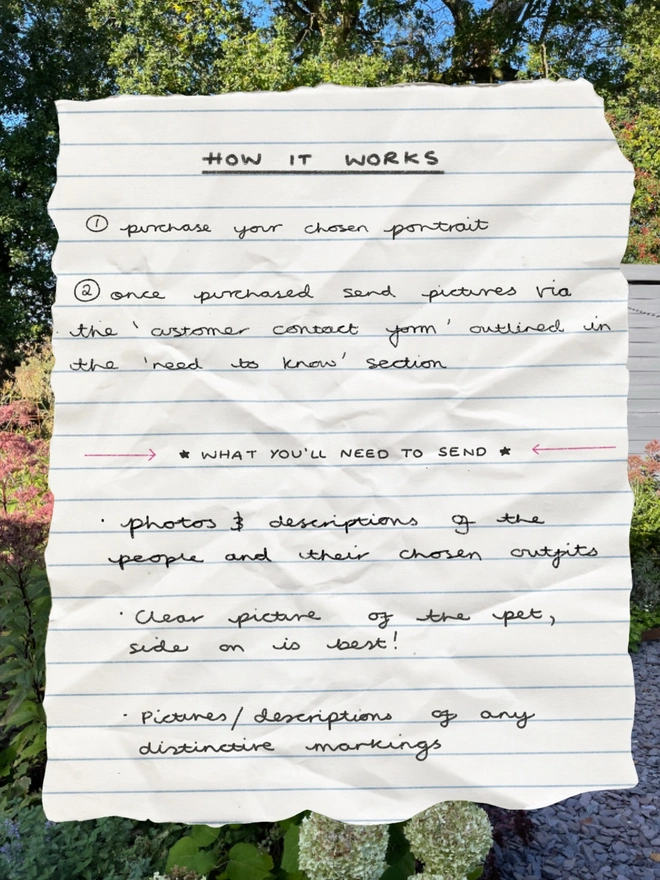 HOW IT WORKS
① purchase your chosen portrait
② once purchased send pictures via
the 'customer contact form' outlined in
the 'need to know' section
→ ★ WHAT YOU'LL NEED TO SEND ★ ←
· photos & descriptions of the
people and their chosen outfits
· Clear picture of the pet,
side on is best!
· Pictures/descriptions of any
distinctive markings